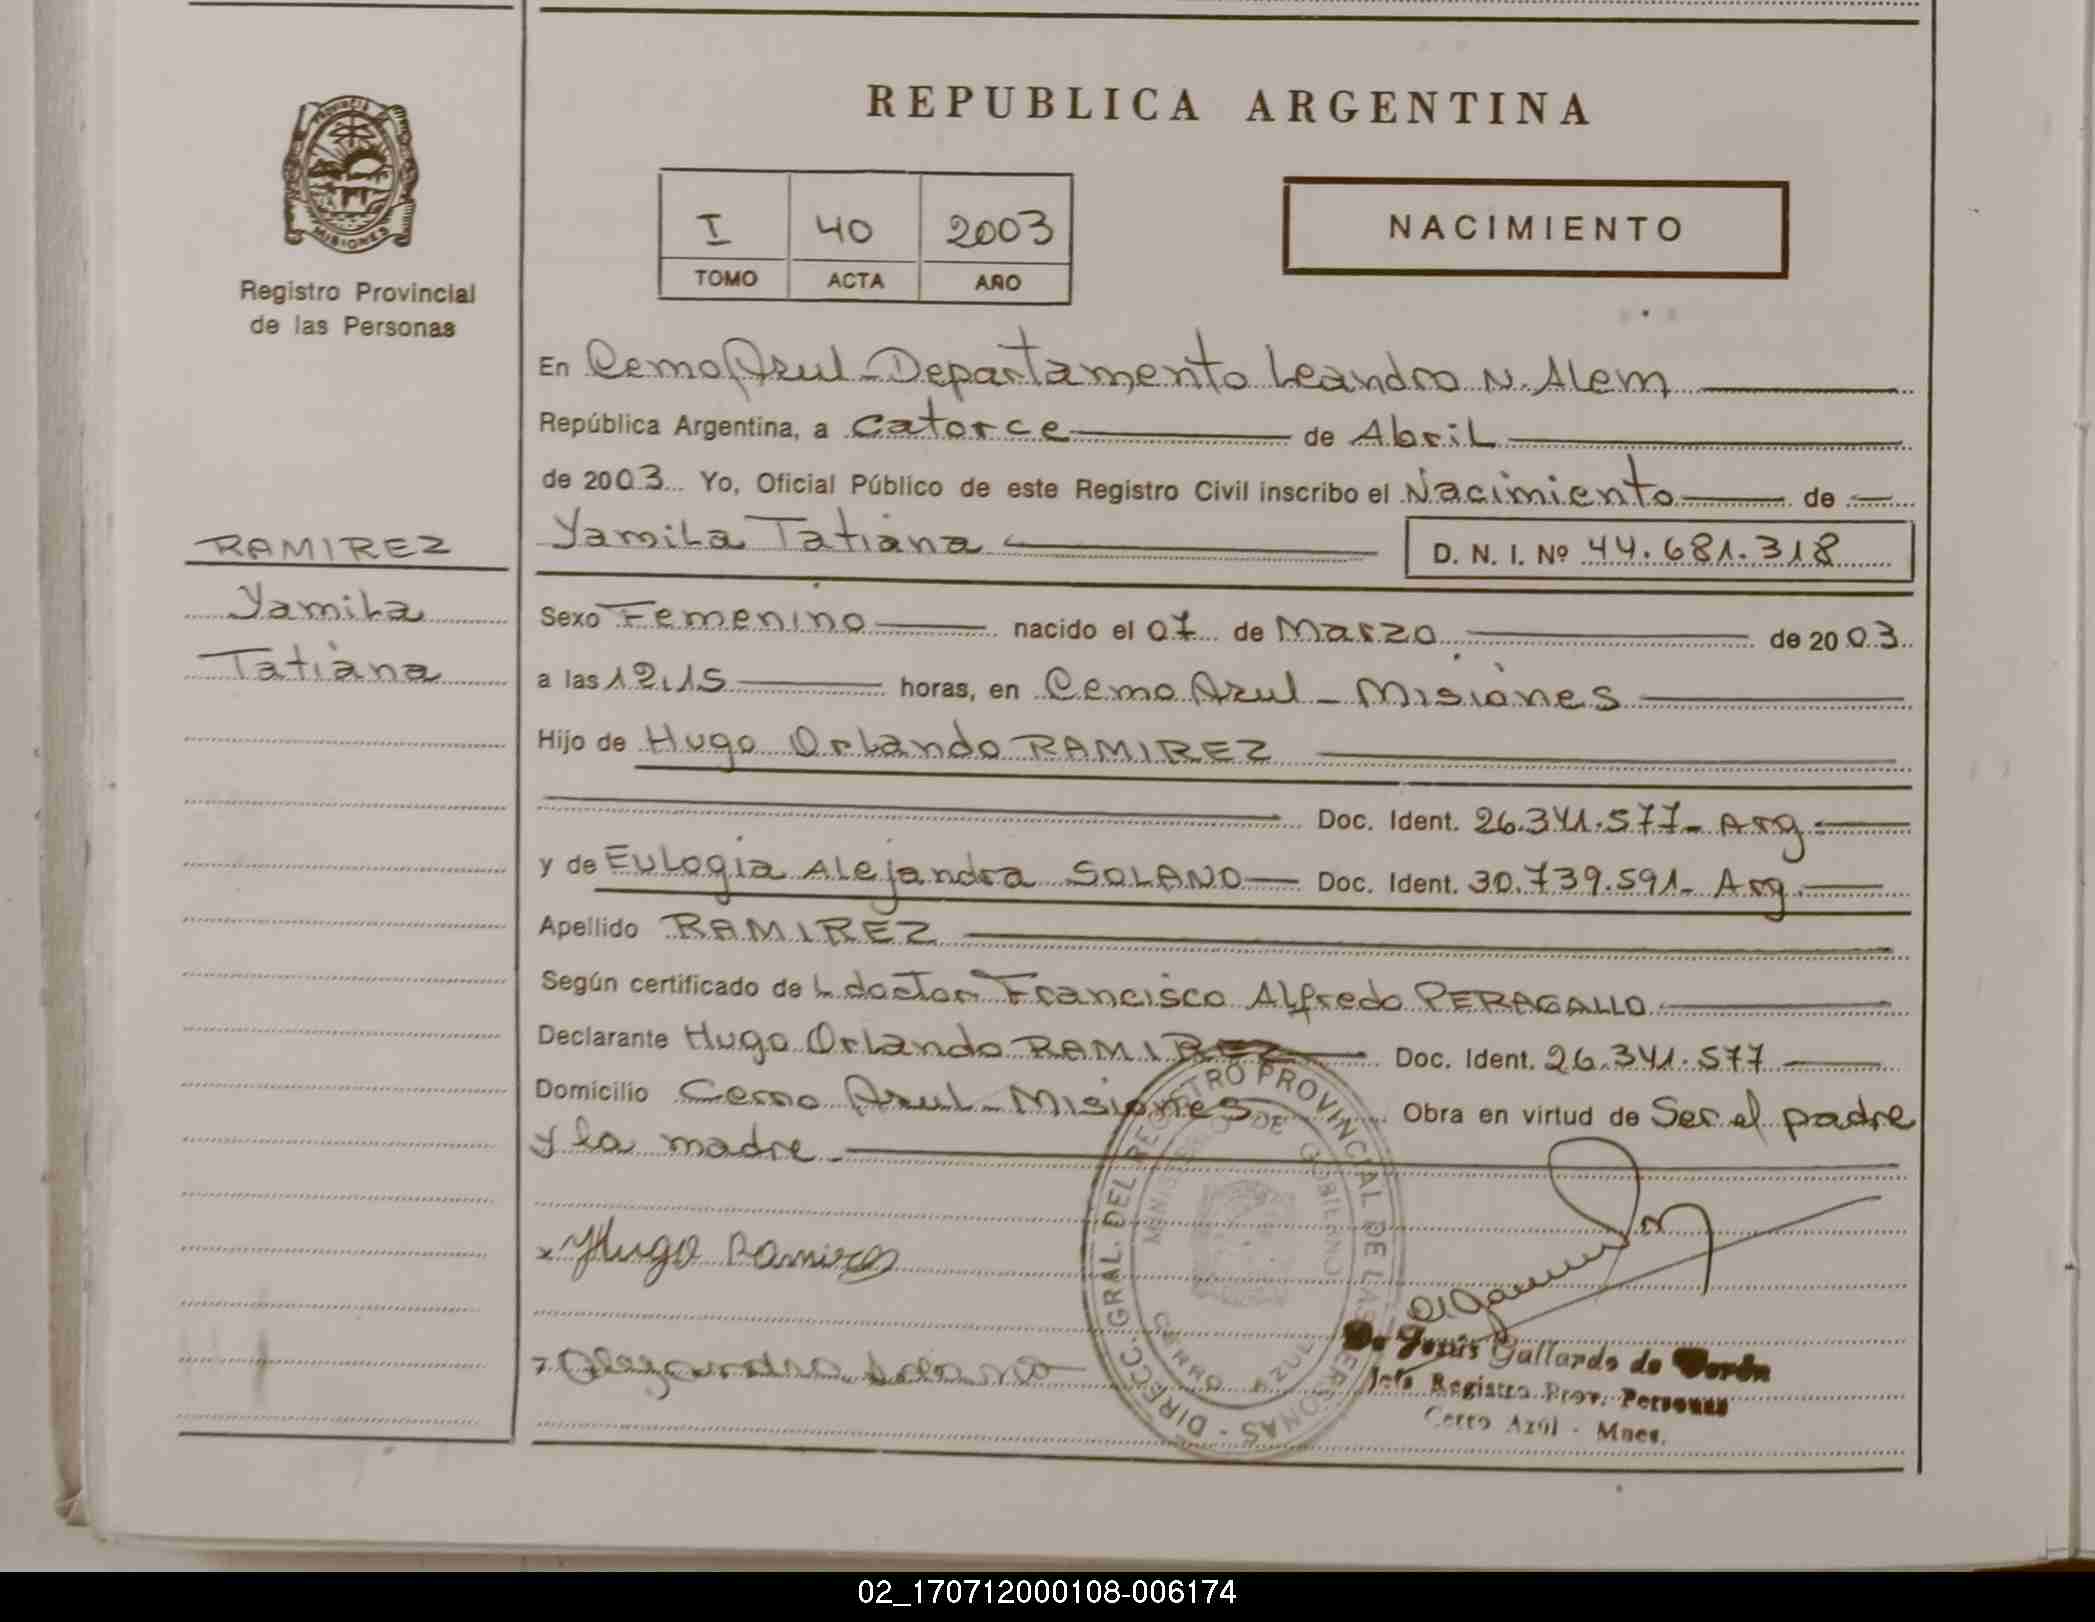 REPUBLICA ARGENTINA
PROVINCIA DE
MISIONES
Registro Provincial
de las Personas
I 40 2003
TOMO ACTA AÑO
NACIMIENTO
En Cerro Azul - Departamento Leandro N. Alem
República Argentina, a Catorce de Abril
de 2003 Yo, Oficial Público de este Registro Civil inscribo el Nacimiento de
Yamila Tatiana D. N. I. Nº 44.681.318
RAMIREZ
Yamila
Tatiana
Sexo Femenino nacido el 07 de Marzo de 2003
a las 12.15 horas, en Cerro Azul - Misiones
Hijo de Hugo Orlando RAMIREZ
Doc. Ident. 26.341.577- Arg.
y de Eulogia Alejandra SOLANO Doc. Ident. 30.739.591- Arg.
Apellido RAMIREZ
Según certificado de L doctor Francisco Alfredo PERAGALLO
Declarante Hugo Orlando RAMIREZ Doc. Ident. 26.341.577
Domicilio Cerro Azul - Misiones Obra en virtud de Ser el padre
y la madre
x Hugo Ramirez
Alejandra Solano
DIRECC. GRAL. DEL REGISTRO PROVINCIAL DE LAS PERSONAS -
MINISTERIO DE GOBIERNO
CERRO AZUL
Jesús Gallardo de
Jefe Registro Prov. Personas
Cerro Azúl - Mnes.
02_170712000108-006174